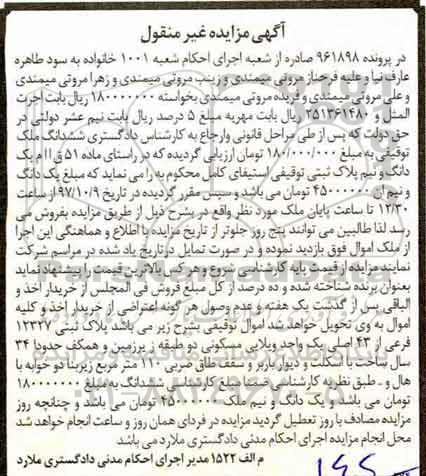 آگهی مزایده غیر منقول
در پرونده ۹۶۱۸۹۸ صادره از شعبه اجرای احکام شعبه ۱۰۰۱ خانواده به سود طاهره
عارف نیا و علیه فرحناز مروتی میمندی و زینب مروتی میمندی و زهرا مروتی میمندی
و علی مروتی میمندی و فریده مروتی میمندی بخواسته ۱۸۰۰۰۰۰۰۰ ریال بابت اجرت
المثل و ۲۵۱۳۶۱۴۸۰ ریال بابت مهریه مبلغ ۵ درصد ریال بابت نیم عشر دولتی در
حق دولت که پس از طی مراحل قانونی وارجاع به کارشناس دادگستری ششدانگ ملک
توقیفی به مبلغ ۱۸۰/۰۰۰/۰۰۰ تومان ارزیابی گردیده که در راستای ماده ۵۱ ق ا ا م یک
دانگ و نیم پلاک ثبتی توقیفی استیفای کامل محکوم به را می نماید که مبلغ یک دانگ
و نیم ان ۴۵۰۰۰۰۰۰ تومان می باشد و سپس مقرر گردیده در تاریخ ۹۷/۱۰/۹ از ساعت
۱۲/۳۰ تا ساعت پایان ملک مورد نظر واقع در بشرح ذیل از طریق مزایده بفروش می
رسد لذا طالبین می توانند پنج روز جلوتر از تاریخ مزایده با اطلاع و هماهنگی این اجرا
از ملک اموال فوق بازدید نموده و در صورت تمایل درتاریخ یاد شده در مراسم شرکت
نمایند مزایده از قیمت پایه کارشناسی شروع و هر کس بالاترین قیمت را پیشنهاد نماید
بعنوان برنده شناخته شده و ده درصد از کل مبلغ فروش فی المجلس از خریدار اخذ و
الباقی پس از گذشت یک هفته و عدم وصول هر گونه اعتراضی از خریدار اخذ و کلیه
اموال به وی تحویل خواهد شد اموال توقیفی بشرح زیر می باشد پلاک ثبتی ۱۲۳۲۷
فرعی از ۴۳ اصلی یک واحد ویلایی مسکونی دو طبقه زیرزمین و همکف حدودا ۳۴
سال ساخت با اسکلت و دیوار باربر و سقف طاق ضربی ۱۱۰ متر مربع زیربنا دو خوابه با
هال و .. طبق نظریه کارشناسی ضمنا مبلغ کارشناسی ششدانگ به مبلغ ۱۸۰۰۰۰۰۰۰
تومان می باشد و یک دانگ و نیم ملک ۴۵۰۰۰۰۰۰ تومان می باشد و چنانچه روز
مزایده مصادف با روز تعطیل گردید مزایده در فردای همان روز و ساعت انجام خواهد شد
محل انجام مزایده اجرای احکام مدنی دادگستری ملارد می باشد
م الف ۱۵۲۲ مدیر اجرای احکام مدنی دادگستری ملارد